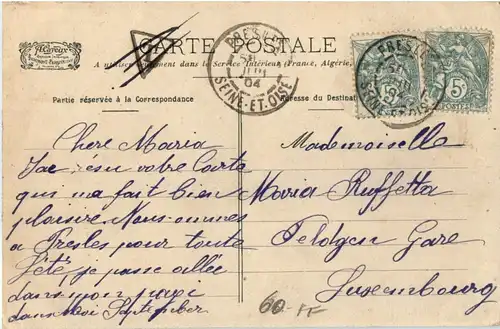 A. Cateux
CARTE POSTALE
A utiliser seulement dans le Service Intérieur (France, Algérie,
Partie réservée à la Correspondance
Adresse du Destinat
PRESLES
04
SEINE-ET-OISE
PRESLES
5c
POSTES
Chere Maria
J'ac résu votre Carte
qui ma fait bien
plaisire Nous ommes
a Presles pour toute
l'été, je passe allee
dans mon payi
dans moi September
Mademoiselle
Maria Ruffetta
Feldgen Gare
Luxembourg
60.- FF